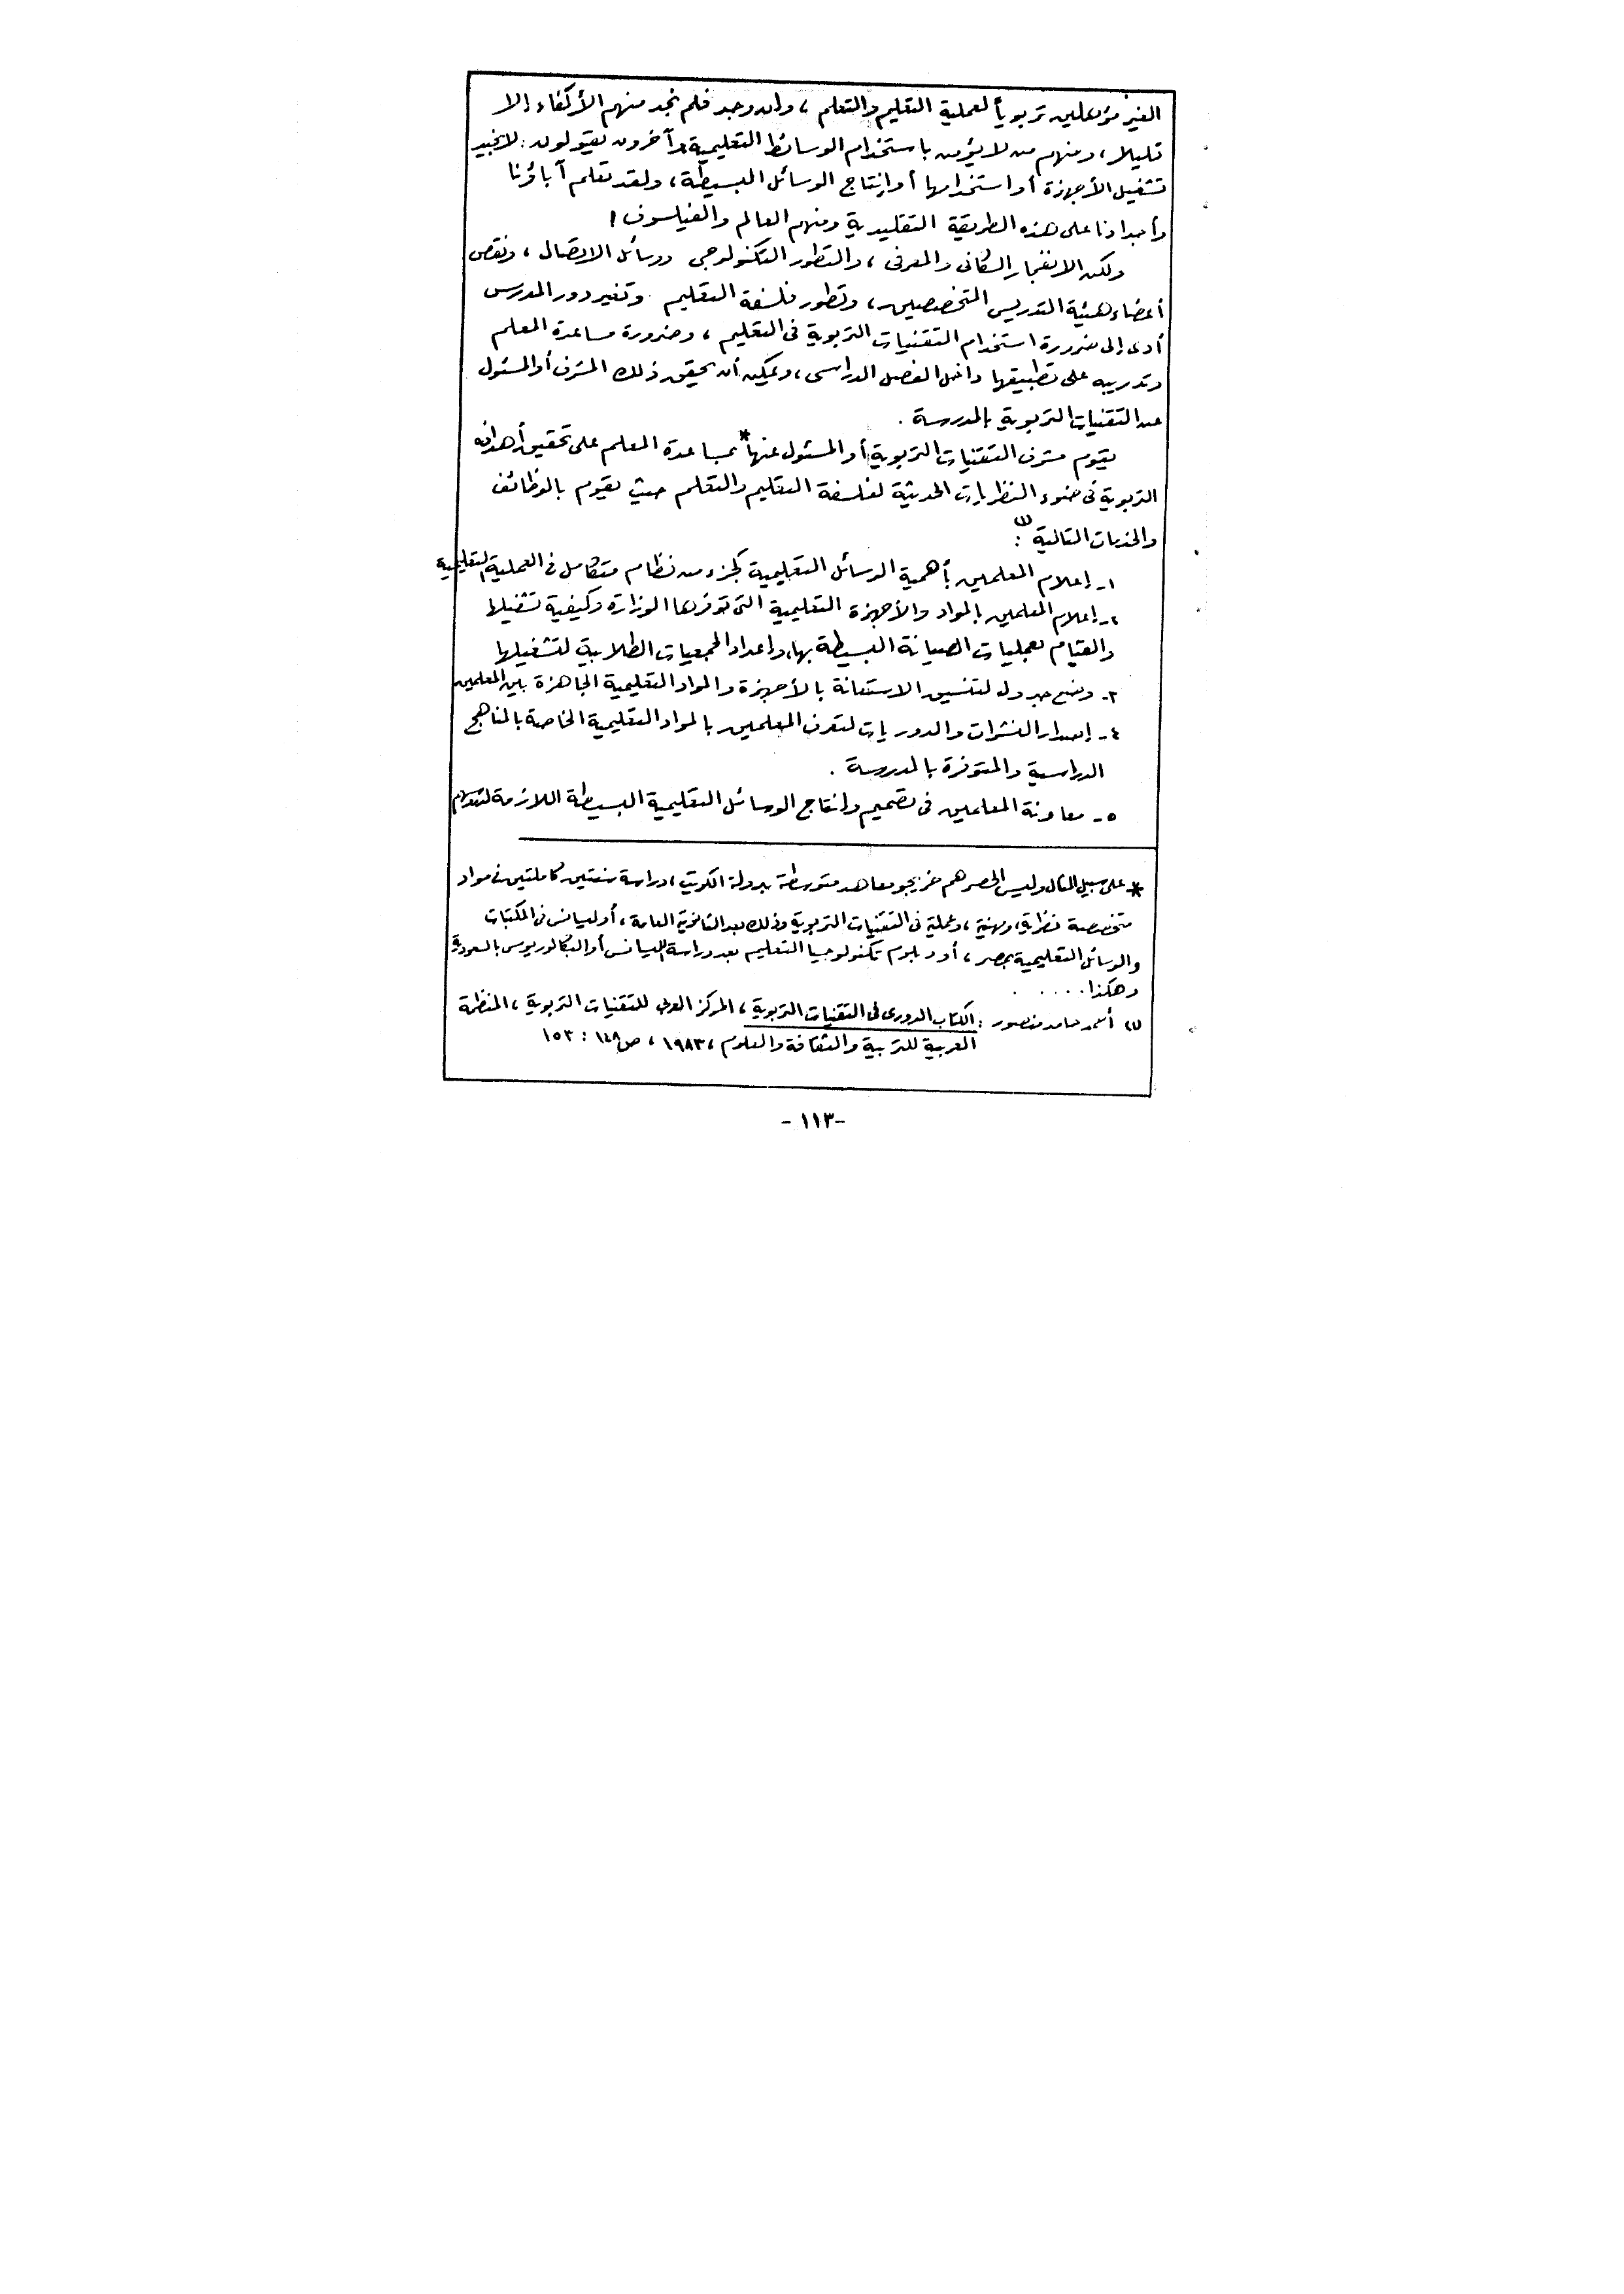 الغير مؤهلين تربوياً لعملية التعليم والتعلم ، وإن وجد فلم نجد منهم الأكفاء إلا
قليلا ، ومنهم من لا يؤمن باستخدام الوسائط التعليمية وآخرون يقولون : لا نجيد
تشغيل الأجهزة أو استخدامها أو إنتاج الوسائل البسيطة ، ولقد تعلم آباؤنا
وأجدادنا على هذه الطريقة التقليدية ومنهم العالم والفيلسوف !
ولكن الانفجار السكانى والمعرفى ، والتطور التكنولوجى ووسائل الاتصال ، ونقص
أعضاء هيئة التدريس المتخصصين ، وتطور فلسفة التعليم وتغير دور المدرس
أدى إلى ضرورة استخدام التقنيات التربوية فى التعليم ، وضرورة مساعدة المعلم
وتدريبه على تطبيقها داخل الفصل الدراسى ، ويمكن أن يحقق ذلك المشرف أو المسئول
عن التقنيات التربوية بالمدرسة .
يقوم مشرف التقنيات التربوية أو المسئول عنها * بمساعدة المعلم على تحقيق أهدافه
التربوية فى ضوء النظريات الحديثة لفلسفة التعليم والتعلم حيث يقوم بالوظائف
والخدمات التالية (١) :
١- إعلام المعلمين بأهمية الوسائل التعليمية كجزء من نظام متكامل فى العملية التعليمية
٢- إعلام المعلمين بالمواد والأجهزة التعليمية التى توفرها الوزارة وكيفية تشغيلها
والقيام بعمليات الصيانة البسيطة بها، وإعداد الجمعيات الطلابية لتشغيلها
٣- وضع جدول لتنسيق الاستعانة بالأجهزة والمواد التعليمية الجاهزة بين المعلمين
٤- إصدار النشرات والدوريات لتعرف المعلمين بالمواد التعليمية الخاصة بالمناهج
الدراسية والمتوفرة بالمدرسة .
٥- معاونة المعلمين فى تصميم وانتاج الوسائل التعليمية البسيطة اللازمة
* على سبيل المثال وليس الحصر هم خريجو معاهد متوسطة بدولة الكويت ، دراسة سنتين كاملتين فى مواد
متخصصة نظرية ، ومهنية ، وعملية فى التقنيات التربوية وذلك بعد الثانوية العامة ، أو ليسانس فى المكتبات
والوسائل التعليمية بمصر ، أو دبلوم تكنولوجيا التعليم بعد دراسة الليسانس أو البكالوريوس بالسعودية
وهكذا . . . . .
(١) أحمد حامد منصور : الكتاب الدورى فى التقنيات التربوية ، المركز العربى للتقنيات التربوية ، المنظمة
العربية للتربية والثقافة والعلوم ، ١٩٨٣ ، ص ١٤٨ : ١٥٣
- ١١٣ -